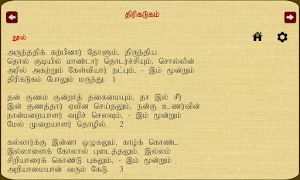 திரிகடுகம்
நூல்
அருந்ததிக் கற்பினார் தோளும், திருந்திய
தொல் குடியில் மாண்டார் தொடர்ச்சியும், சொல்லின்
அரில் அகற்றும் கேள்வியார் நட்பும், - இம் மூன்றும்
திரிகடுகம் போலும் மருந்து. 1
தன் குணம் குன்றாத் தகைமையும், தா இல் சீர்
இன் குணத்தார் ஏவின செய்தலும், நன்கு உணர்வின்
நான்மறையாளர் வழிச் செலவும், - இம் மூன்றும்
மேல் முறையாளர் தொழில். 2
கல்லார்க்கு இன்னா ஒழுகலும், காழ்க் கொண்ட
இல்லாளைக் கோலால் புடைத்தலும், இல்லம்
சிறியாரைக் கொண்டு புகலும், - இம் மூன்றும்
அறியாமையான் வரும் கேடு. 3